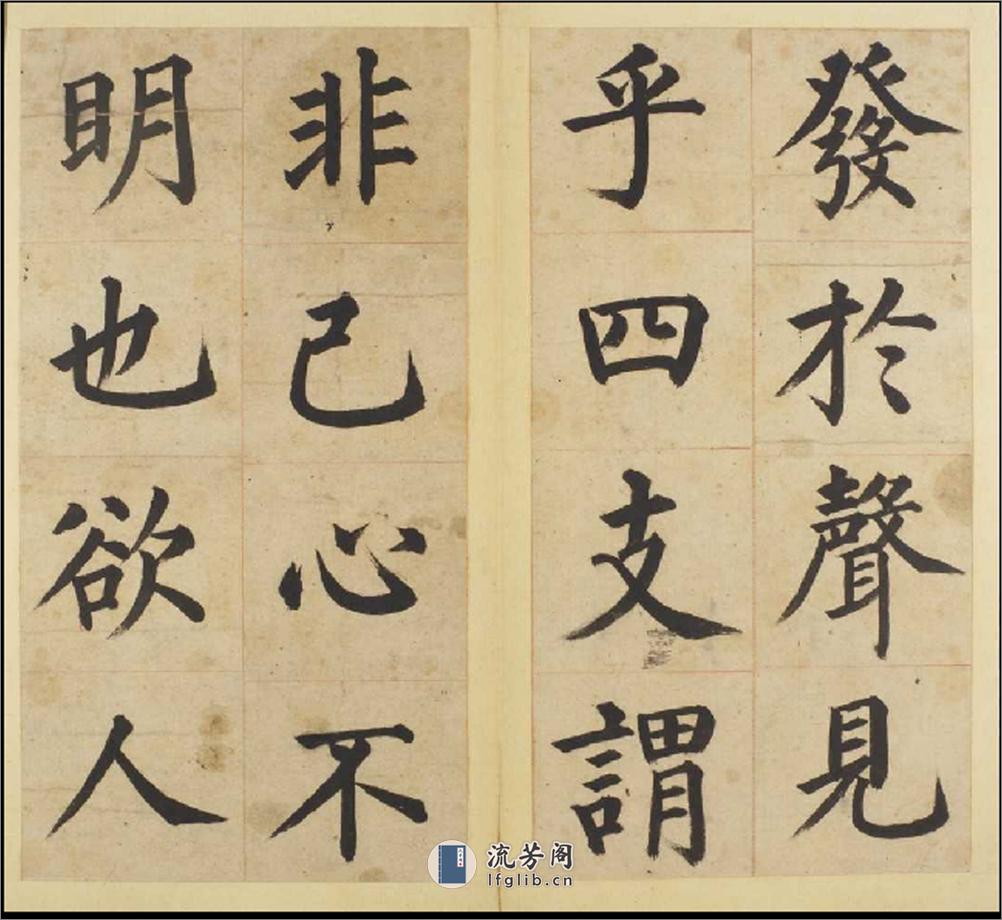 發於聲見
乎四支謂
非己心不
明也欲人
流芳阁
lfglib.cn